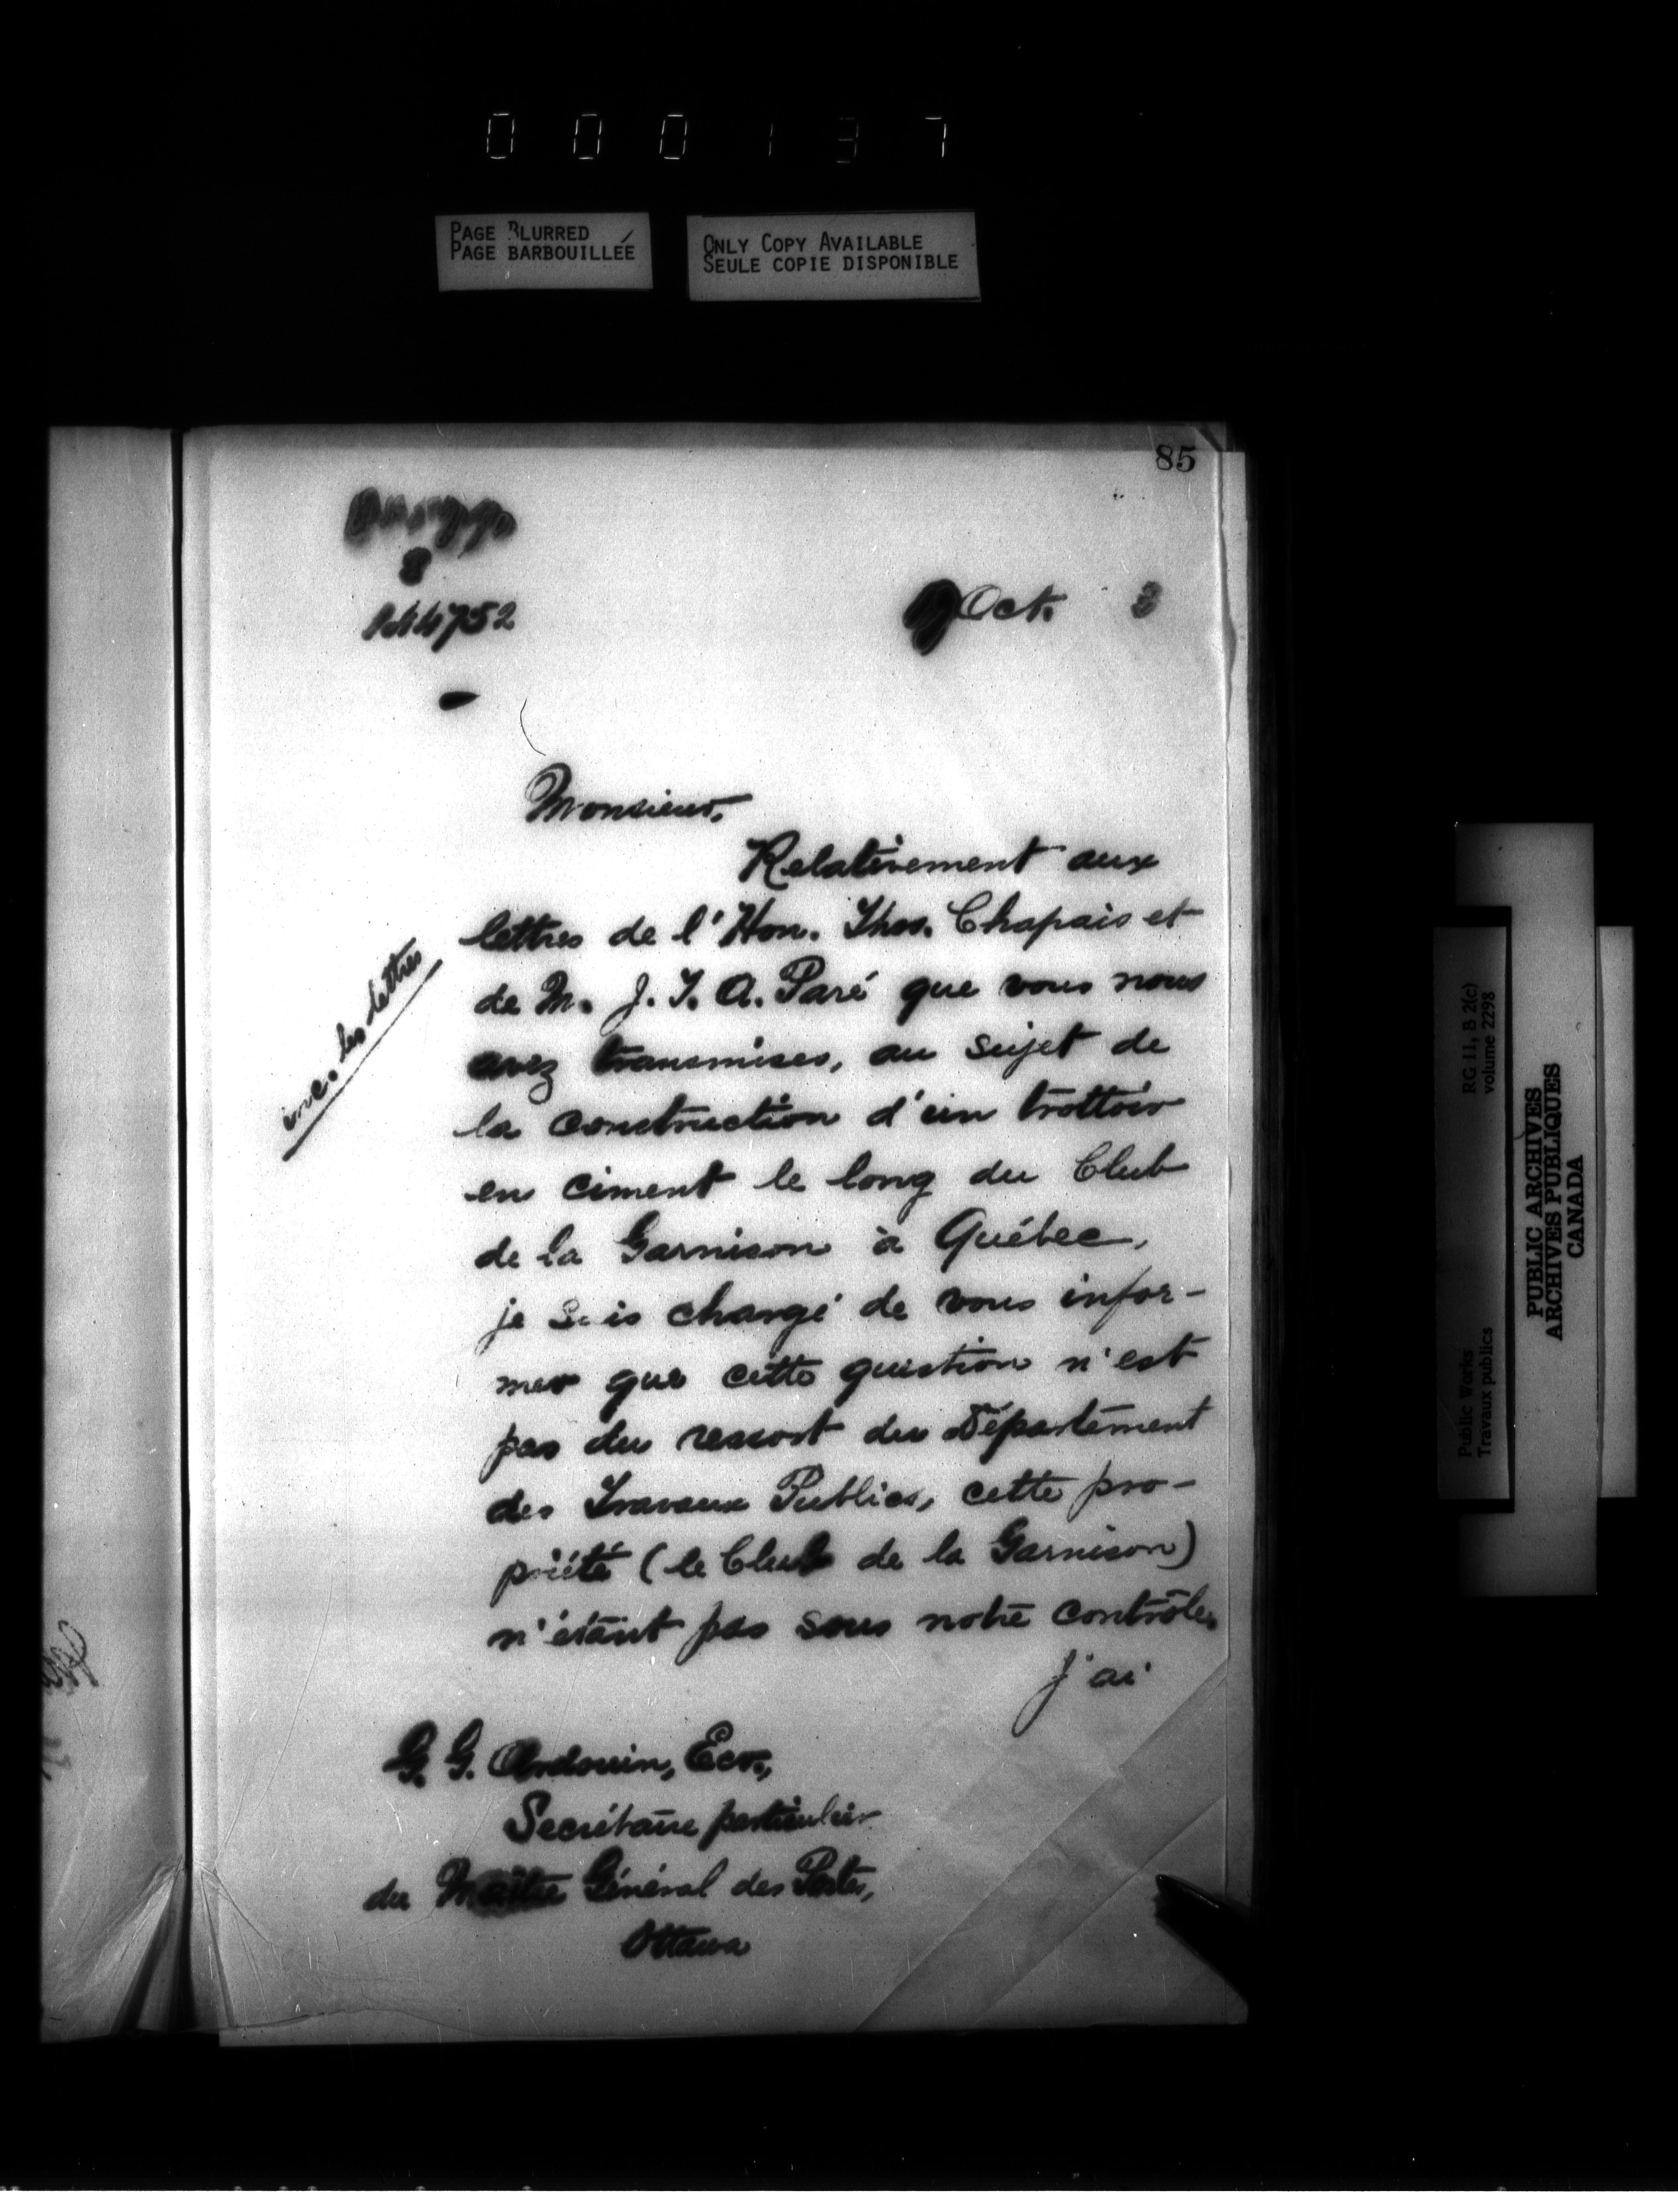 000137
PAGE BLURRED
PAGE BARBOUILLÉE
ONLY COPY AVAILABLE
SEULE COPIE DISPONIBLE
85
8
Oct. 3
Monsieur,
Relativement aux
lettres de l'Hon. Thos. Chapais et
de M. J. T. A. Paré que vous nous
avez transmises, au sujet de
la construction d'un trottoir
en ciment le long du Club
de la Garnison à Québec,
je suis chargé de vous infor-
mer que cette question n'est
pas du ressort du Département
des Travaux Publics, cette pro-
priété (le Club de la Garnison)
n'étant pas sous notre contrôle.
J'ai
inc. les lettres
G. G. Ardouin, Ecr.,
Secrétaire particulier
du Maître Général des Postes,
Ottawa
Public Works
Travaux publics
RG 11, B 2(c)
volume 2298
PUBLIC ARCHIVES
ARCHIVES PUBLIQUES
CANADA